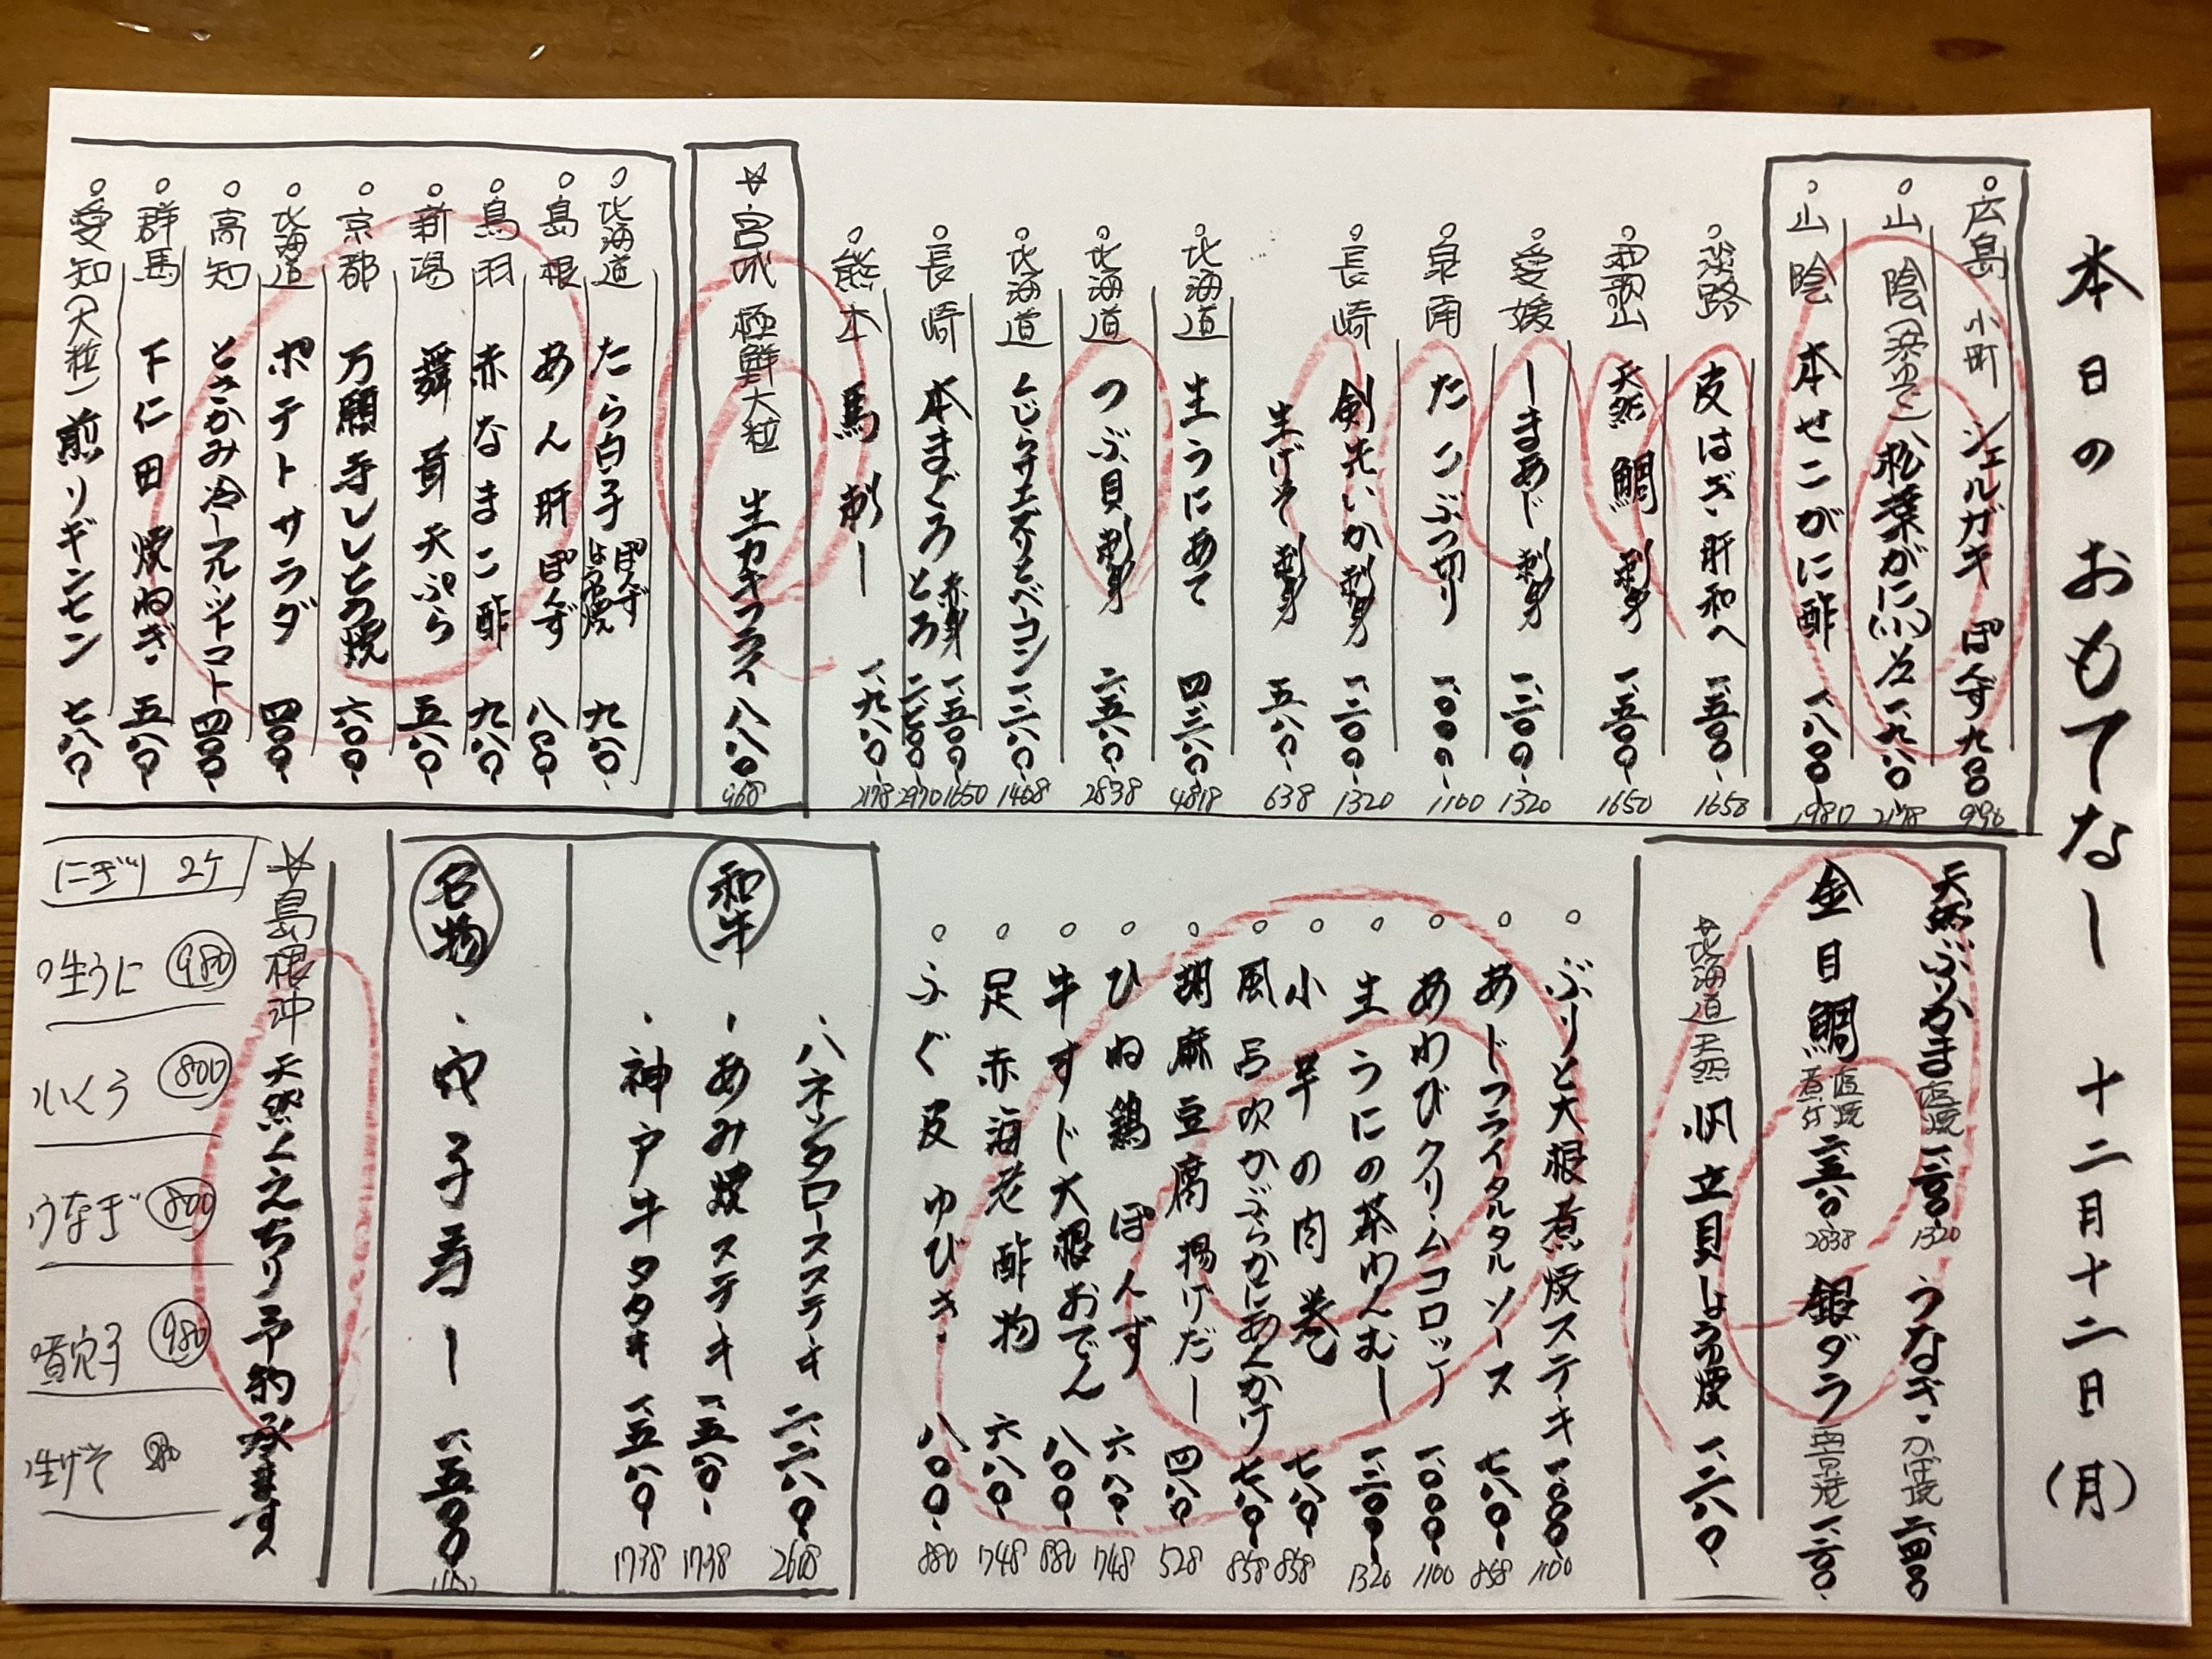 本日のおもてなし 十二月十二日(月)
広島 小町 シェルガキ ぽんず 九〇〇 990
山陰(浜ゆで)松葉がに(小) 一、九八〇 2178
山陰 本せこがに酢 一、八〇〇 1980
淡路 皮はぎ肝和へ 一、五〇〇 1650
和歌山 天然鯛 刺身 一、五〇〇 1650
愛媛 しまあじ 刺身 一、二〇〇 1320
泉南 たこぶつ切り 一、〇〇〇 1100
長崎 剣先いか 刺身 一、二〇〇 1320
生げそ 刺身 五八〇 638
北海道 生うにあて 四、三八〇 4818
北海道 つぶ貝 刺身 二、五八〇 2838
北海道 くじらサエズリとベーコン 一、二八〇 1408
長崎 本まぐろ 赤身 一、五〇〇 1650
とろ 二、七〇〇 2970
熊本 馬刺し 一、九八〇 2178
☆宮城 極鮮大粒 生カキフライ 八八〇 968
北海道 たら白子 ぽんず しょうゆ焼 九八〇
島根 あん肝 ぽんず 八八〇
鳥羽 赤なまこ酢 九八〇
新潟 舞茸天ぷら 五八〇
京都 万願寺ししとう焼 六〇〇
北海道 ポテトサラダ 四八〇
高知 とさかみ冷しフルーツトマト 四八〇
群馬 下仁田 焼ねぎ 五八〇
愛知(大粒)煎りギンナン 七八〇
天然ぶりかま 塩焼 一、二〇〇 1320 うなぎ かば焼 二、四〇〇
金目鯛 塩焼 煮付 二、五八〇 2838 銀ダラ 西京焼 一、二〇〇
北海道 天然 帆立貝しょうゆ焼 一、二八〇
ぶりと大根煮焼ステーキ 一、〇〇〇 1100
あじフライタルタルソース 七八〇 858
あわびクリームコロッケ 一、〇〇〇 1100
生うにの茶わんむし 一、二〇〇 1320
小芋の肉巻 七八〇 858
風呂吹かぶらかにあんかけ 七八〇 858
胡麻豆腐揚げだし 四八〇 528
ひね鶏ぽんず 六八〇 748
牛すじ大根おでん 八〇〇 880
足赤海老酢物 六八〇 748
ふぐ皮ゆびき 八〇〇 880
和牛
・ハネシタロースステーキ 二、三八〇 2618
・あみ焼ステーキ 一、五八〇 1738
・神戸牛タタキ 一、五八〇 1738
名物
・穴子寿し 一、五〇〇
☆島根沖 天然くえちり予約承ます
にぎり 2ケ
生うに 980
いくら 800
うなぎ 800
煮穴子 980
生げそ